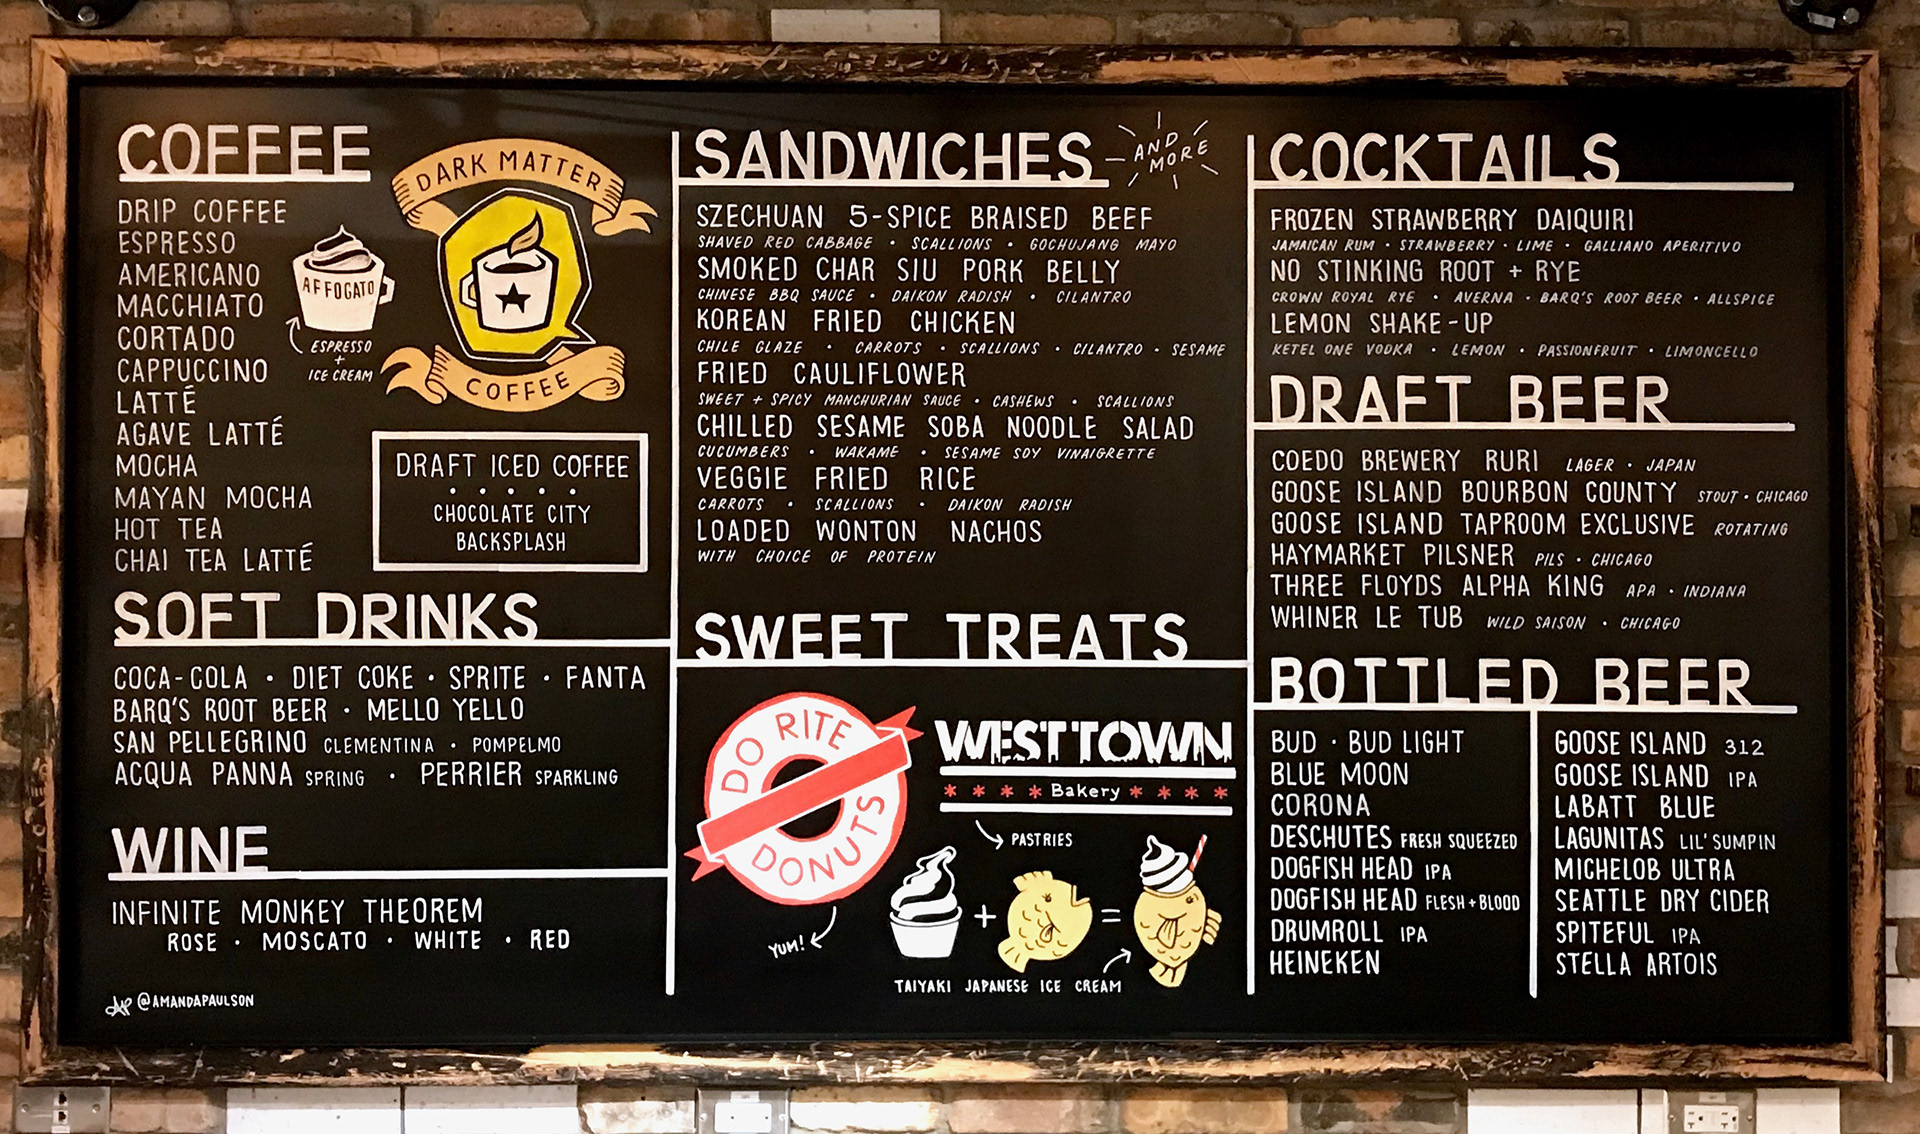 COFFEE
DRIP COFFEE
ESPRESSO
AMERICANO
MACCHIATO
CORTADO
CAPPUCCINO
LATTÉ
AGAVE LATTÉ
MOCHA
MAYAN MOCHA
HOT TEA
CHAI TEA LATTÉ
AFFOGATO
ESPRESSO
+
ICE CREAM
DARK MATTER
COFFEE
DRAFT ICED COFFEE
• • • • •
CHOCOLATE CITY
BACKSPLASH
SOFT DRINKS
COCA-COLA • DIET COKE • SPRITE • FANTA
BARQ'S ROOT BEER • MELLO YELLO
SAN PELLEGRINO CLEMENTINA • POMPELMO
ACQUA PANNA SPRING • PERRIER SPARKLING
WINE
INFINITE MONKEY THEOREM
ROSE • MOSCATO • WHITE • RED
@AMANDAPAULSON
SANDWICHES AND MORE
SZECHUAN 5-SPICE BRAISED BEEF
SHAVED RED CABBAGE • SCALLIONS • GOCHUJANG MAYO
SMOKED CHAR SIU PORK BELLY
CHINESE BBQ SAUCE • DAIKON RADISH • CILANTRO
KOREAN FRIED CHICKEN
CHILE GLAZE • CARROTS • SCALLIONS • CILANTRO • SESAME
FRIED CAULIFLOWER
SWEET + SPICY MANCHURIAN SAUCE • CASHEWS • SCALLIONS
CHILLED SESAME SOBA NOODLE SALAD
CUCUMBERS • WAKAME • SESAME SOY VINAIGRETTE
VEGGIE FRIED RICE
CARROTS • SCALLIONS • DAIKON RADISH
LOADED WONTON NACHOS
WITH CHOICE OF PROTEIN
SWEET TREATS
DO RITE
DONUTS
YUM!
WEST TOWN
* * * * Bakery * * * *
PASTRIES
+ =
TAIYAKI JAPANESE ICE CREAM
COCKTAILS
FROZEN STRAWBERRY DAIQUIRI
JAMAICAN RUM • STRAWBERRY • LIME • GALLIANO APERITIVO
NO STINKING ROOT + RYE
CROWN ROYAL RYE • AVERNA • BARQ'S ROOT BEER • ALLSPICE
LEMON SHAKE-UP
KETEL ONE VODKA • LEMON • PASSIONFRUIT • LIMONCELLO
DRAFT BEER
COEDO BREWERY RURI LAGER • JAPAN
GOOSE ISLAND BOURBON COUNTY STOUT • CHICAGO
GOOSE ISLAND TAPROOM EXCLUSIVE ROTATING
HAYMARKET PILSNER PILS • CHICAGO
THREE FLOYDS ALPHA KING APA • INDIANA
WHINER LE TUB WILD SAISON • CHICAGO
BOTTLED BEER
BUD • BUD LIGHT
BLUE MOON
CORONA
DESCHUTES FRESH SQUEEZED
DOGFISH HEAD IPA
DOGFISH HEAD FLESH + BLOOD
DRUMROLL IPA
HEINEKEN
GOOSE ISLAND 312
GOOSE ISLAND IPA
LABATT BLUE
LAGUNITAS LIL' SUMPIN
MICHELOB ULTRA
SEATTLE DRY CIDER
SPITEFUL IPA
STELLA ARTOIS